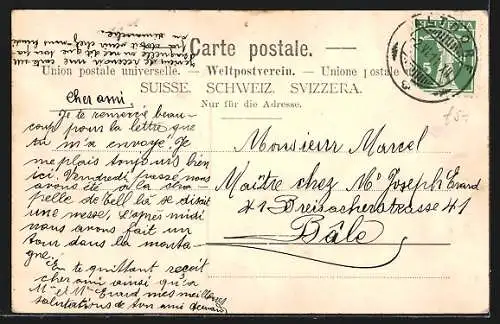 Carte postale.
Union postale universelle. — Weltpostverein. — Unione postale
SUISSE. SCHWEIZ. SVIZZERA.
Nur für die Adresse.
HELVETIA
5
Cher ami.
Je te remercie beau-
coup pour la lettre que
tu m'a envoyé. Je
me plais toujours bien
ici. Vendredi passé nous
avons été à la cha-
pelle de
une messe. L'après midi
nous avons fait un
tour dans la monta-
gne.
En te quittant reçoit
cher ami ainsi qu'à
Mr et Mme Erard mes meilleures
salutations de ton ami
Monsieur Marcel
Maître chez Mr Joseph Erard
41 Breisacherstrasse 41
Bâle